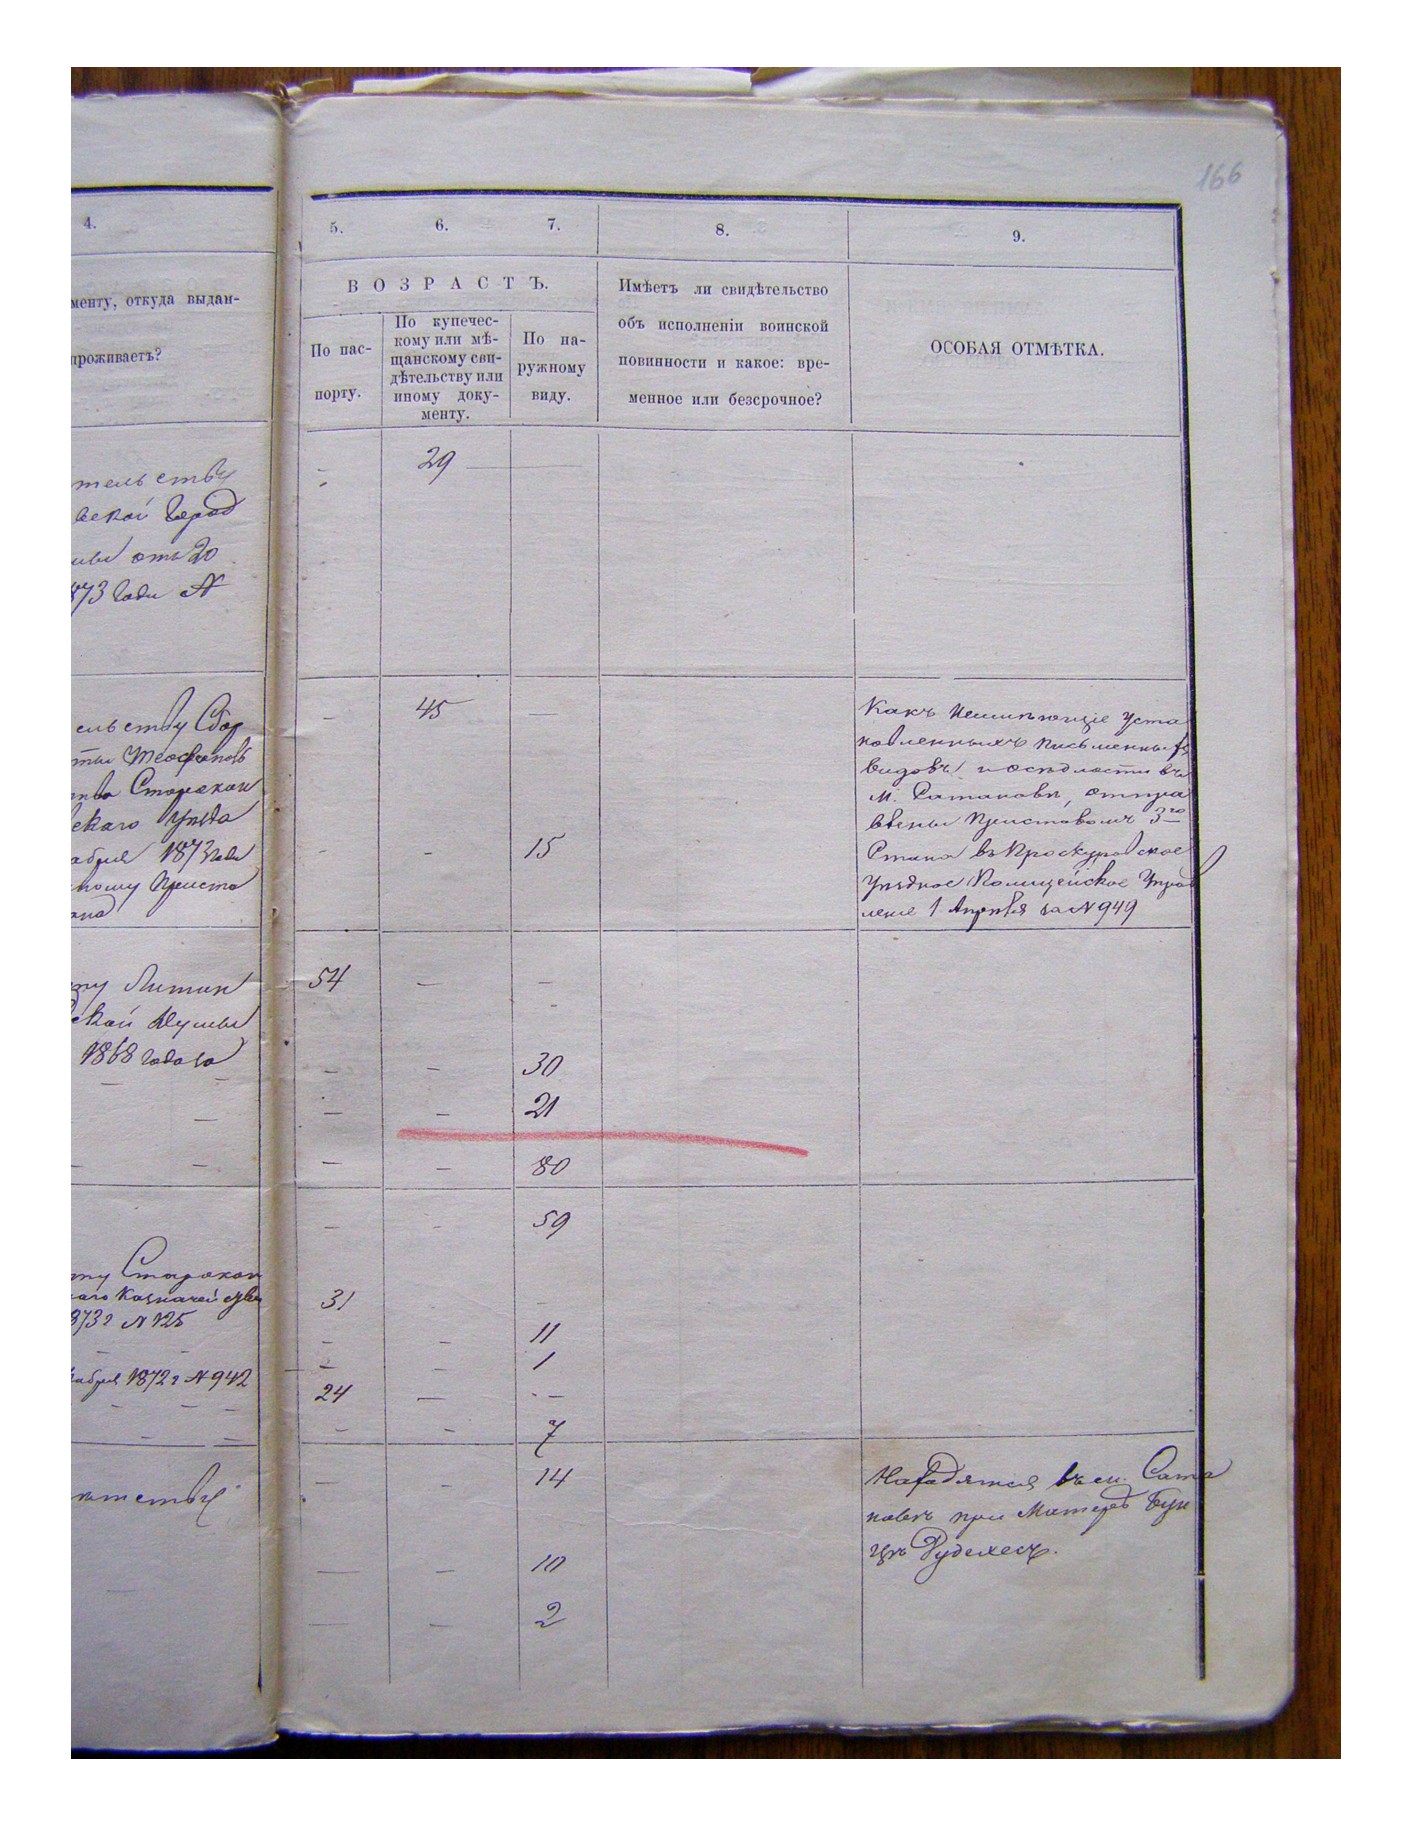 166
4.
менту, откуда выдан-
проживаетъ?
5.
6.
7.
8.
9.
ВОЗРАСТЪ.
По пас-
порту.
По купечес-
кому или мѣ-
щанскому сви-
дѣтельству или
иному доку-
менту.
По на-
ружному
виду.
Имѣетъ ли свидѣтельство
объ исполненіи воинской
повинности и какое: вре-
менное или безсрочное?
ОСОБАЯ ОТМѢТКА.
тельству
ской Город
отъ 20
873 года №
- 29
ельству
Старокон
скаго уѣзда
абря 1873 года
ному Приста
ана
- 45 —
- - 15
Какъ неимѣющіе уста
новленныхъ письменныхъ
видовъ и осѣдлости въ
м. Сатановѣ, отпра
влены Приставомъ 3го
Стана въ Проскуровское
Уѣздное Полицейское Управ
леніе 1 Апрѣля за № 949
ту Литин
ской Думы
1868 года за
54 — —
- - 30
- - 21
- - 80
- - 59
ту Старокон
аго Казначейства
873 г № 125
31 - -
- - 11
- - 1
кабря 1872 г № 942
24 — —
- - 7
- - 14
- - 10
- - 2
Находятся въ м. Сата
новѣ при Матери